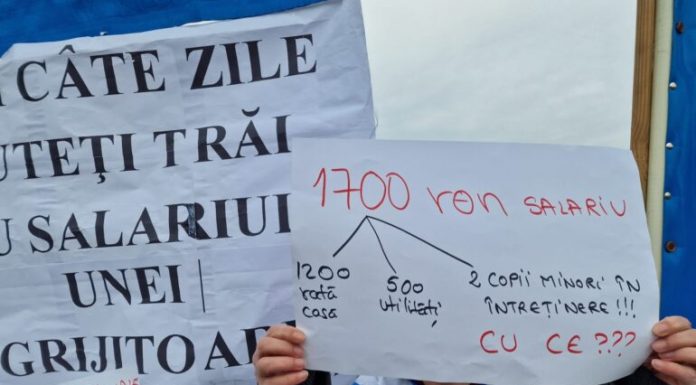 CÂTE ZILE
UTEȚI TRĂI
U SALARIUL
UNEI
GRIJITOARE
1700 ron SALARIU
1200
rată
casă
500
utilități
2 COPII MINORI ÎN
ÎNTREȚINERE!!!
CU CE???